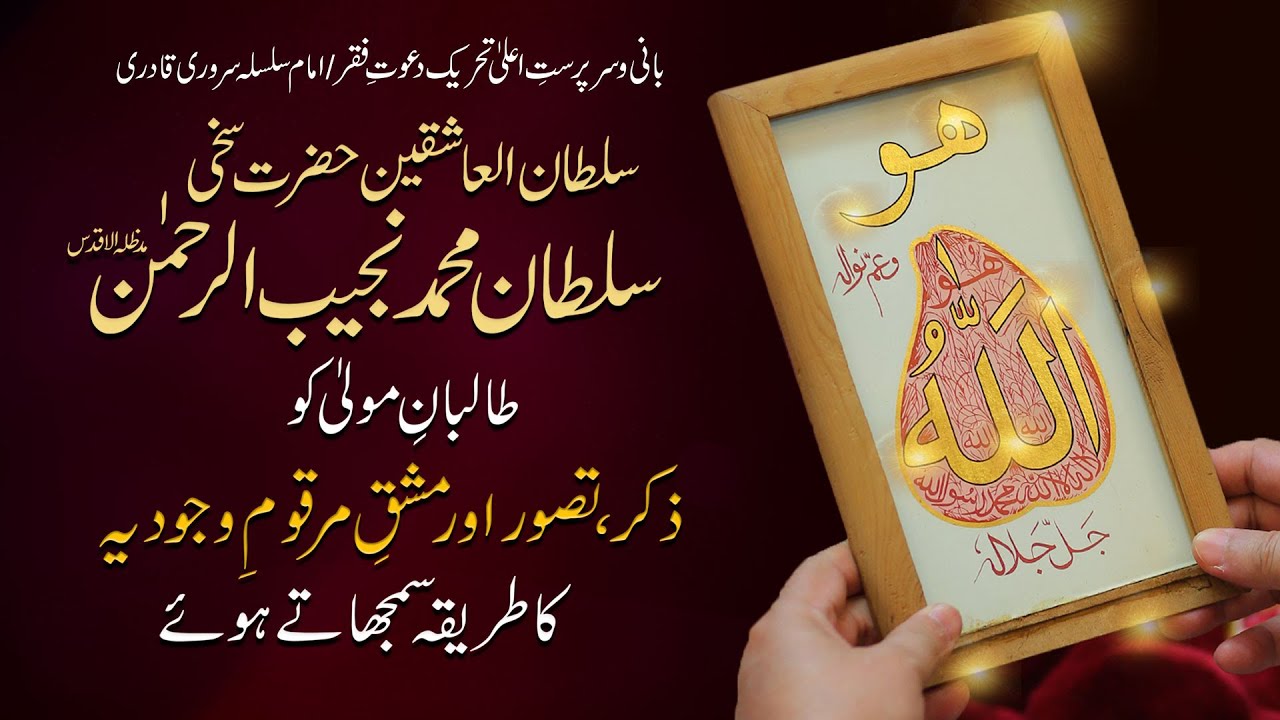 بانی و سرپرستِ اعلیٰ تحریک دعوتِ فقر / امام سلسلہ سروری قادری
سلطان العاشقین حضرت سخی
سلطان محمد نجیب الرحمٰن مدظلہ الاقدس
طالبانِ مولیٰ کو
ذکر، تصور اور مشقِ مرقومِ وجودیہ
کا طریقہ سمجھاتے ہوئے
ھو
وعمّ نوالہ
ھو
اللہُ
للہ لہ
لا الہ الا اللہ محمد رسول اللہ
جَلّ جَلَالہ